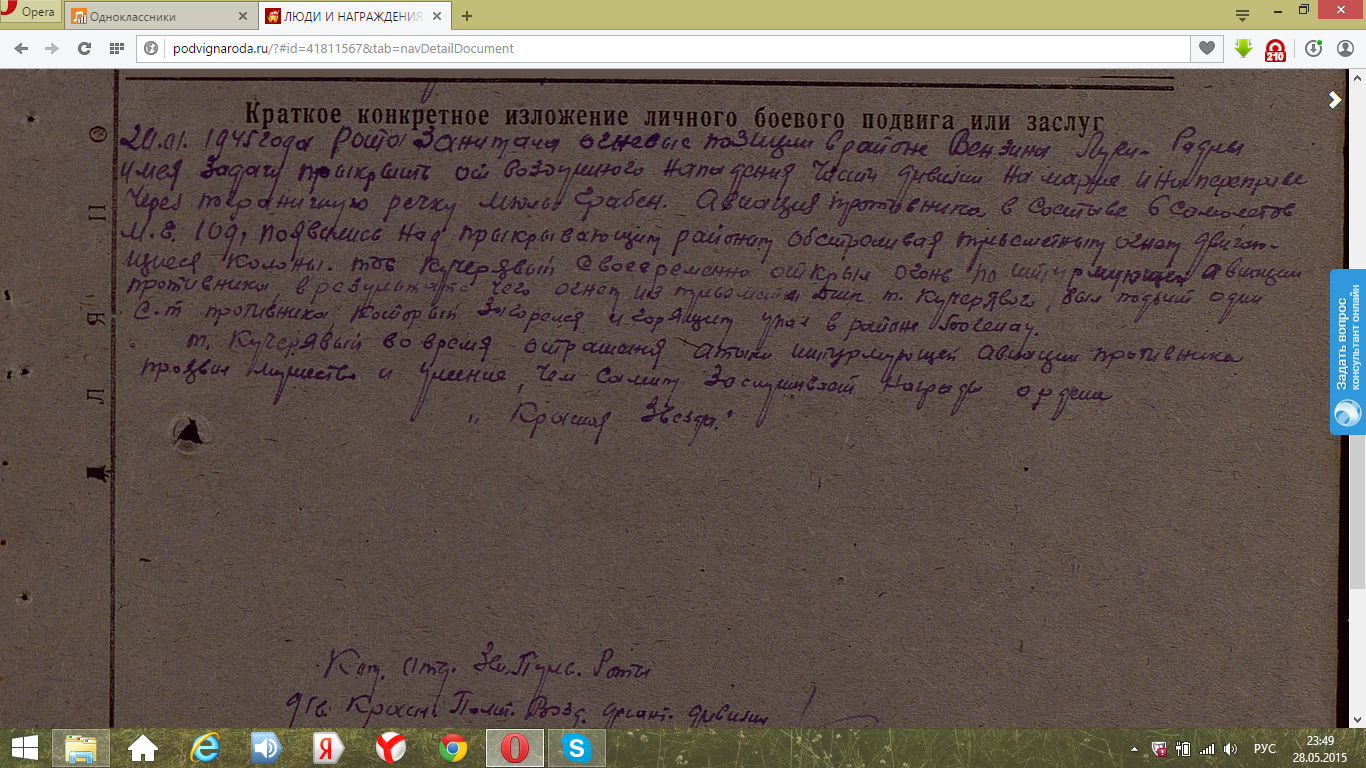 Opera
Одноклассники
ЛЮДИ И НАГРАЖДЕНИЯ
podvignaroda.ru/?#id=41811567&tab=navDetailDocument
210
Краткое конкретное изложение личного боевого подвига или заслуг
20.01. 1945 года Рота Занимала огневые позиции в районе Вензина
имея задачу прикрывать от воздушного нападения Части дивизии на марше и на переправе
Через пограничную речку Мюль Грабен. Авиация противника в Составе 6 Самолетов
М.Е. 109, появились над прикрывающим районом обстреливая пулеметным огнем двигаю-
щиеся колоны. тов Кучерявый своевременно открыл огонь по штурмующей авиации
противника в результате чего огнем из пулемета т. Кучерявого, был подбит один
С-т противника который Загорелся и горящим упал в район
т. Кучерявый во время отражения атаки штурмующей авиации противника
проявил мужество и умение, чем Самим Заслуживает Награды ордена
„Красная Звезда."
П
Я
Л
Ком. Отд. Зен. Пуле. Роты
Гв. Красн. Возд. десант. дивизии
Задать вопрос
консультант онлайн
РУС
23:49
28.05.2015